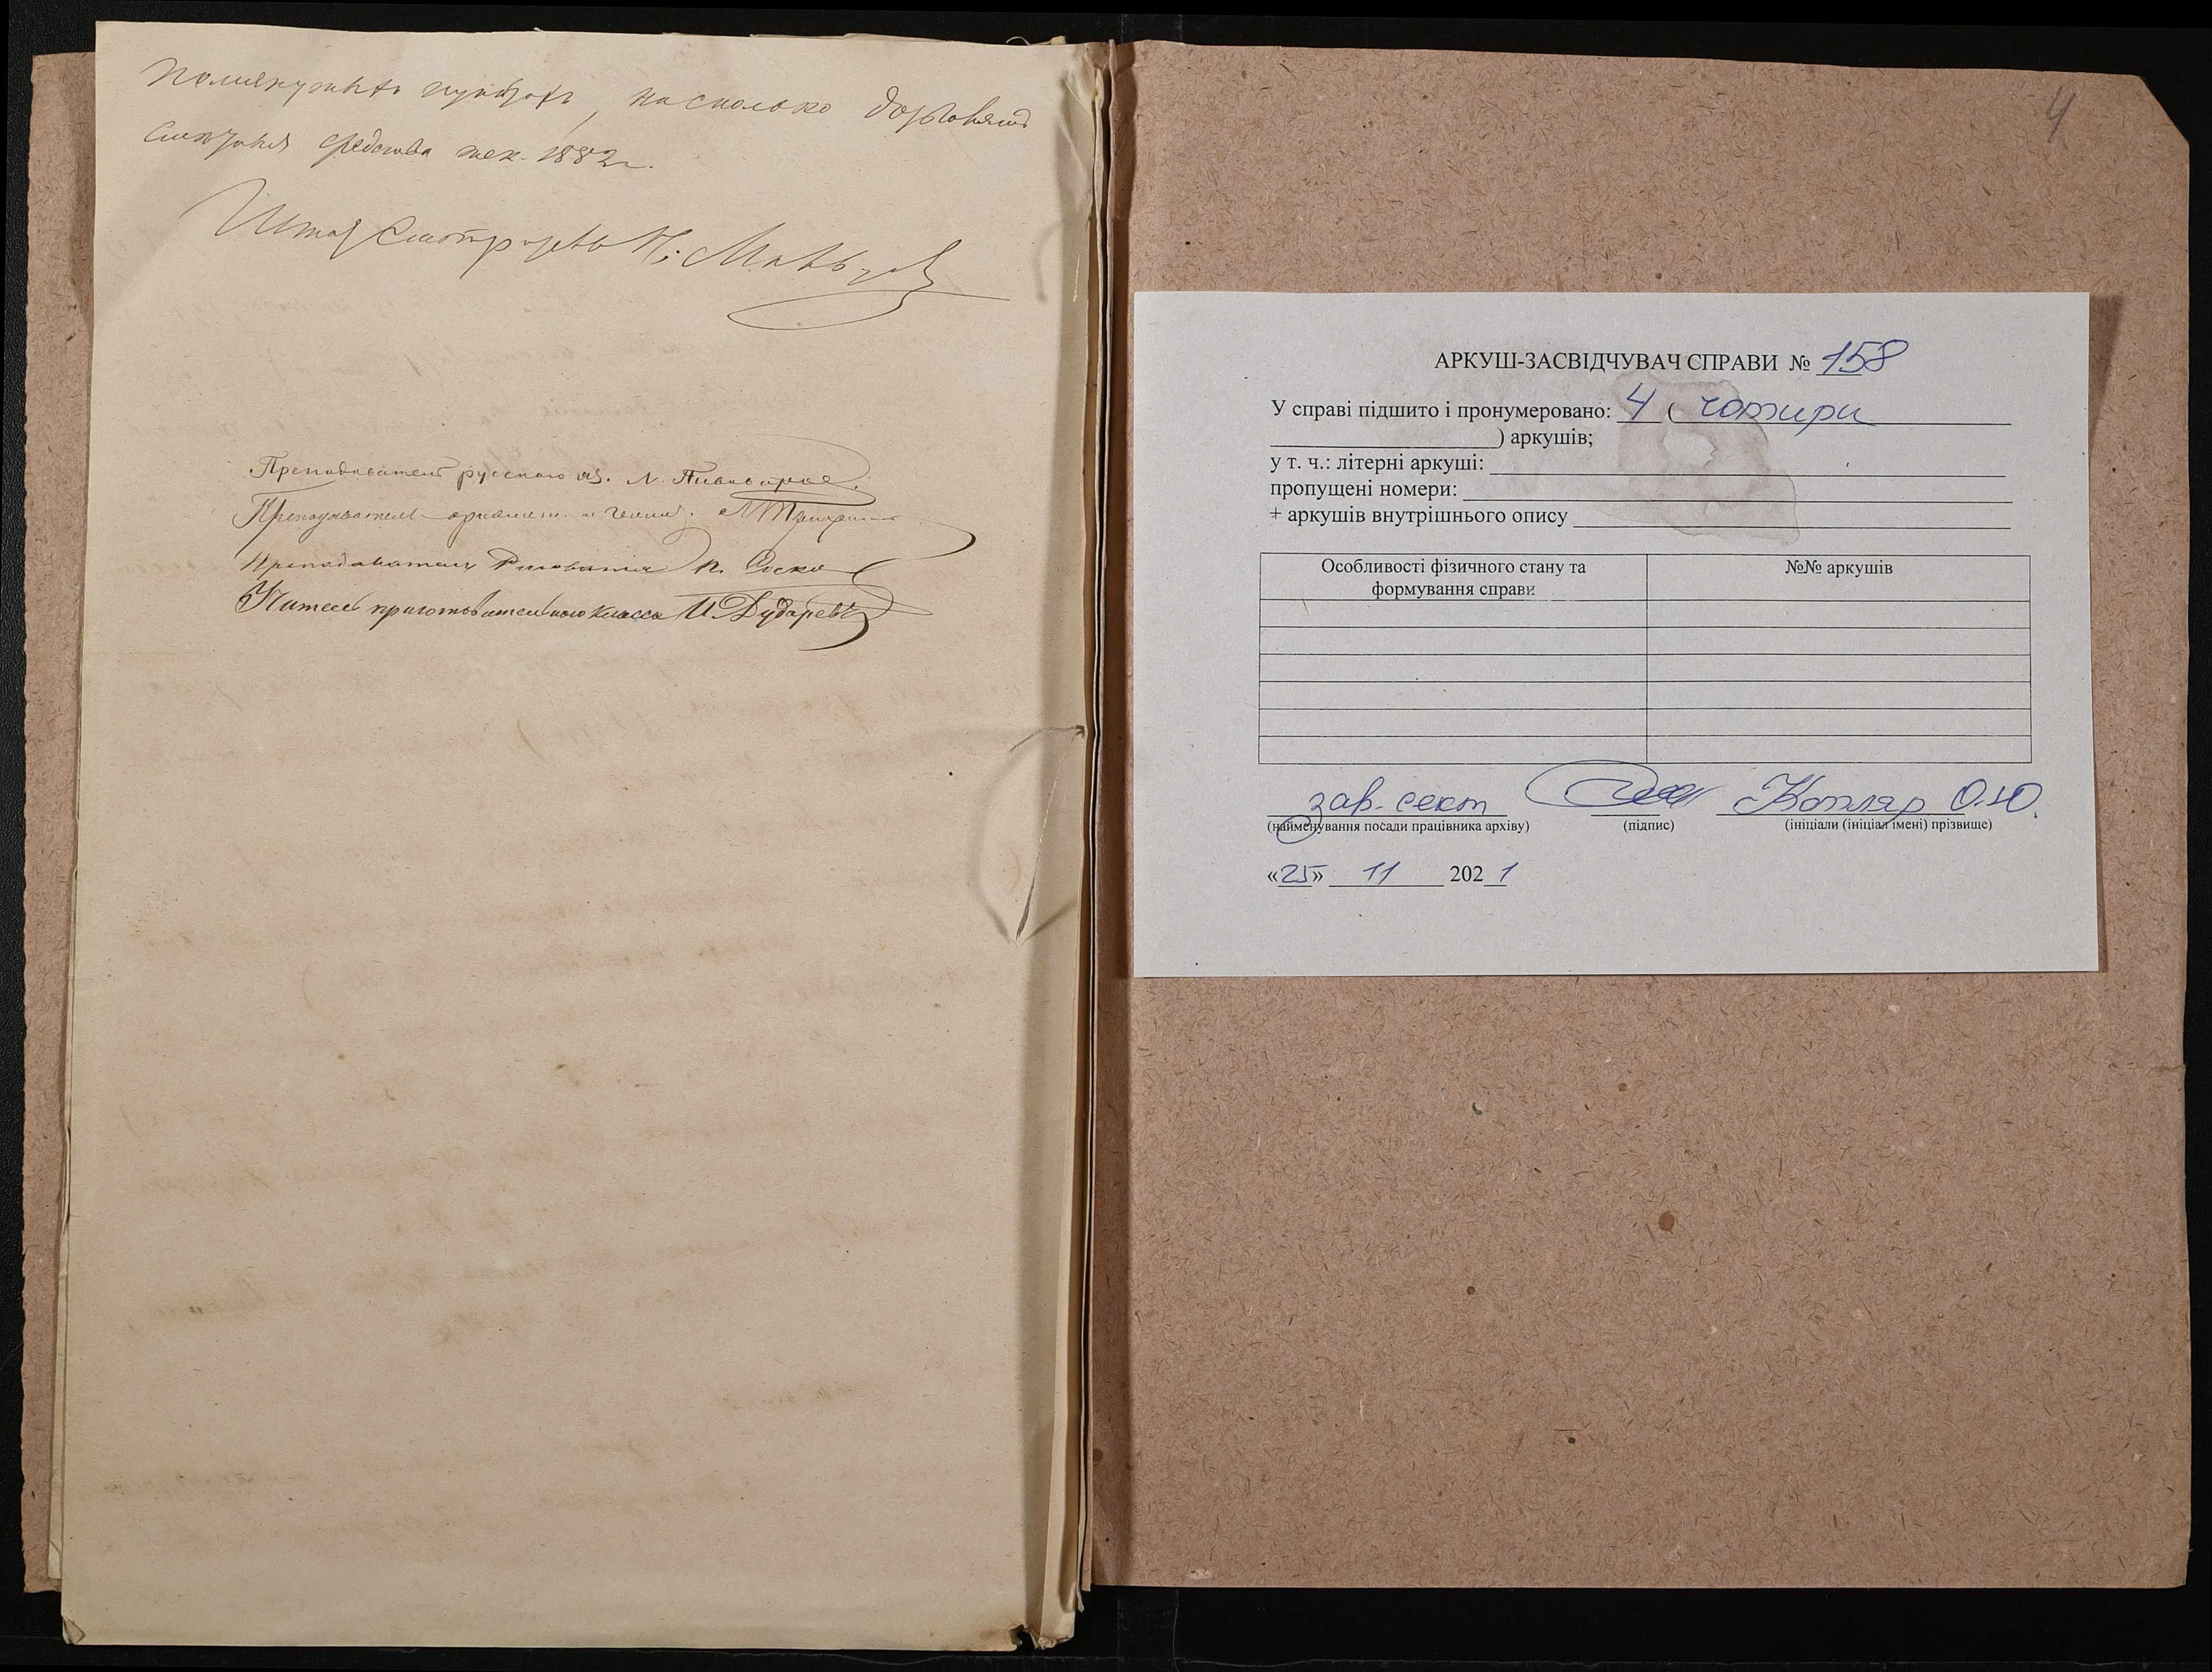 насколько дозволятъ
средства тек. 1882 г.
Штат. Смотритель
Преподаватель русскаго яз.
Преподаватель
Преподаватель Рисованія
Учитель приготовительнаго класса И. Дударевъ
4
АРКУШ-ЗАСВІДЧУВАЧ СПРАВИ № 158
У справі підшито і пронумеровано: 4 ( чотири
) аркушів;
у т. ч.: літерні аркуші:
пропущені номери:
+ аркушів внутрішнього опису
Особливості фізичного стану та
формування справи
№№ аркушів
зав. сект Котляр О.Ю.
(найменування посади працівника архіву) (підпис) (ініціали (ініціал імені) прізвище)
«25» 11 2021